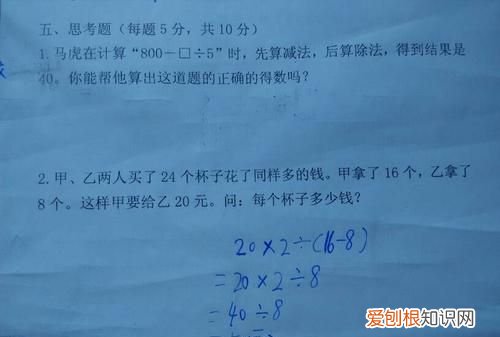 五、思考题（每题5分，共10分）
1. 马虎在计算“800－□÷5”时，先算减法，后算除法，得到结果是
40。你能帮他算出这道题的正确的得数吗？
2. 甲、乙两人买了24个杯子花了同样多的钱。甲拿了16个，乙拿了
8个。这样甲要给乙20元。问：每个杯子多少钱？
20×2÷(16-8)
=20×2÷8
=40÷8
爱刨根知识网